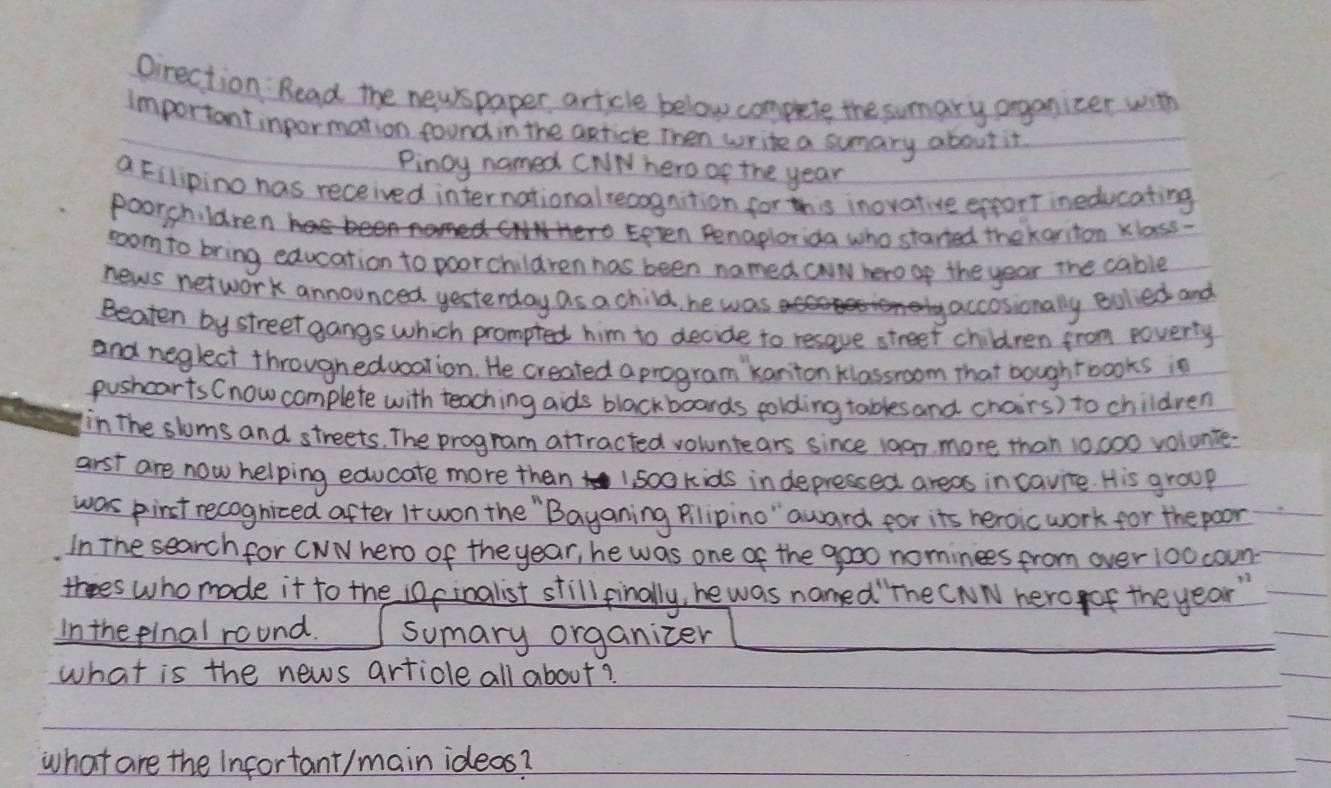 Direction: Read the newspaper article below complete the sumary organizer with
Important inpormation found in the article Then write a sumary about it.
Pinoy named CNN hero of the year
a Filipino has received international recognition for this inovative effort ineducating
poorchildren has been named CNN Hero Efren Penaplorida who started the kariton klass-
room to bring education to poor children has been named CNN hero of the year The cable
news network announced yesterday as a child, he was accosionally Bulied and
Beaten by street gangs which prompted him to decide to resque street children from poverty
and neglect through education. He created a program "kariton klassroom that bought books in
pushcarts (now complete with teaching aids blackboards folding tables and chairs) to children
in The slums and streets. The program attracted voluntears since 1997. more than 10.000 volonte-
arst are now helping educate more then 1,500 kids in depressed areas in cavite. His group
was pirst recognized after It won the "Bayaning Pilipino" award for its heroic work for the poor
In The search for CNN hero of the year, he was one of the 9000 nominees from over 100 coun-
threes who made it to the 10 finalist still finally, he was named "The CNN hero of the year"
In the pinal round.
Sumary organizer
what is the news article all about?
what are the Infortant/main ideas?